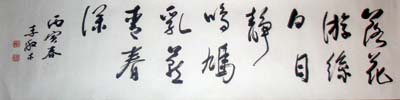 落花
游絲
白日
靜
鳴鳩
乳燕
青春
深
丙寅春
李